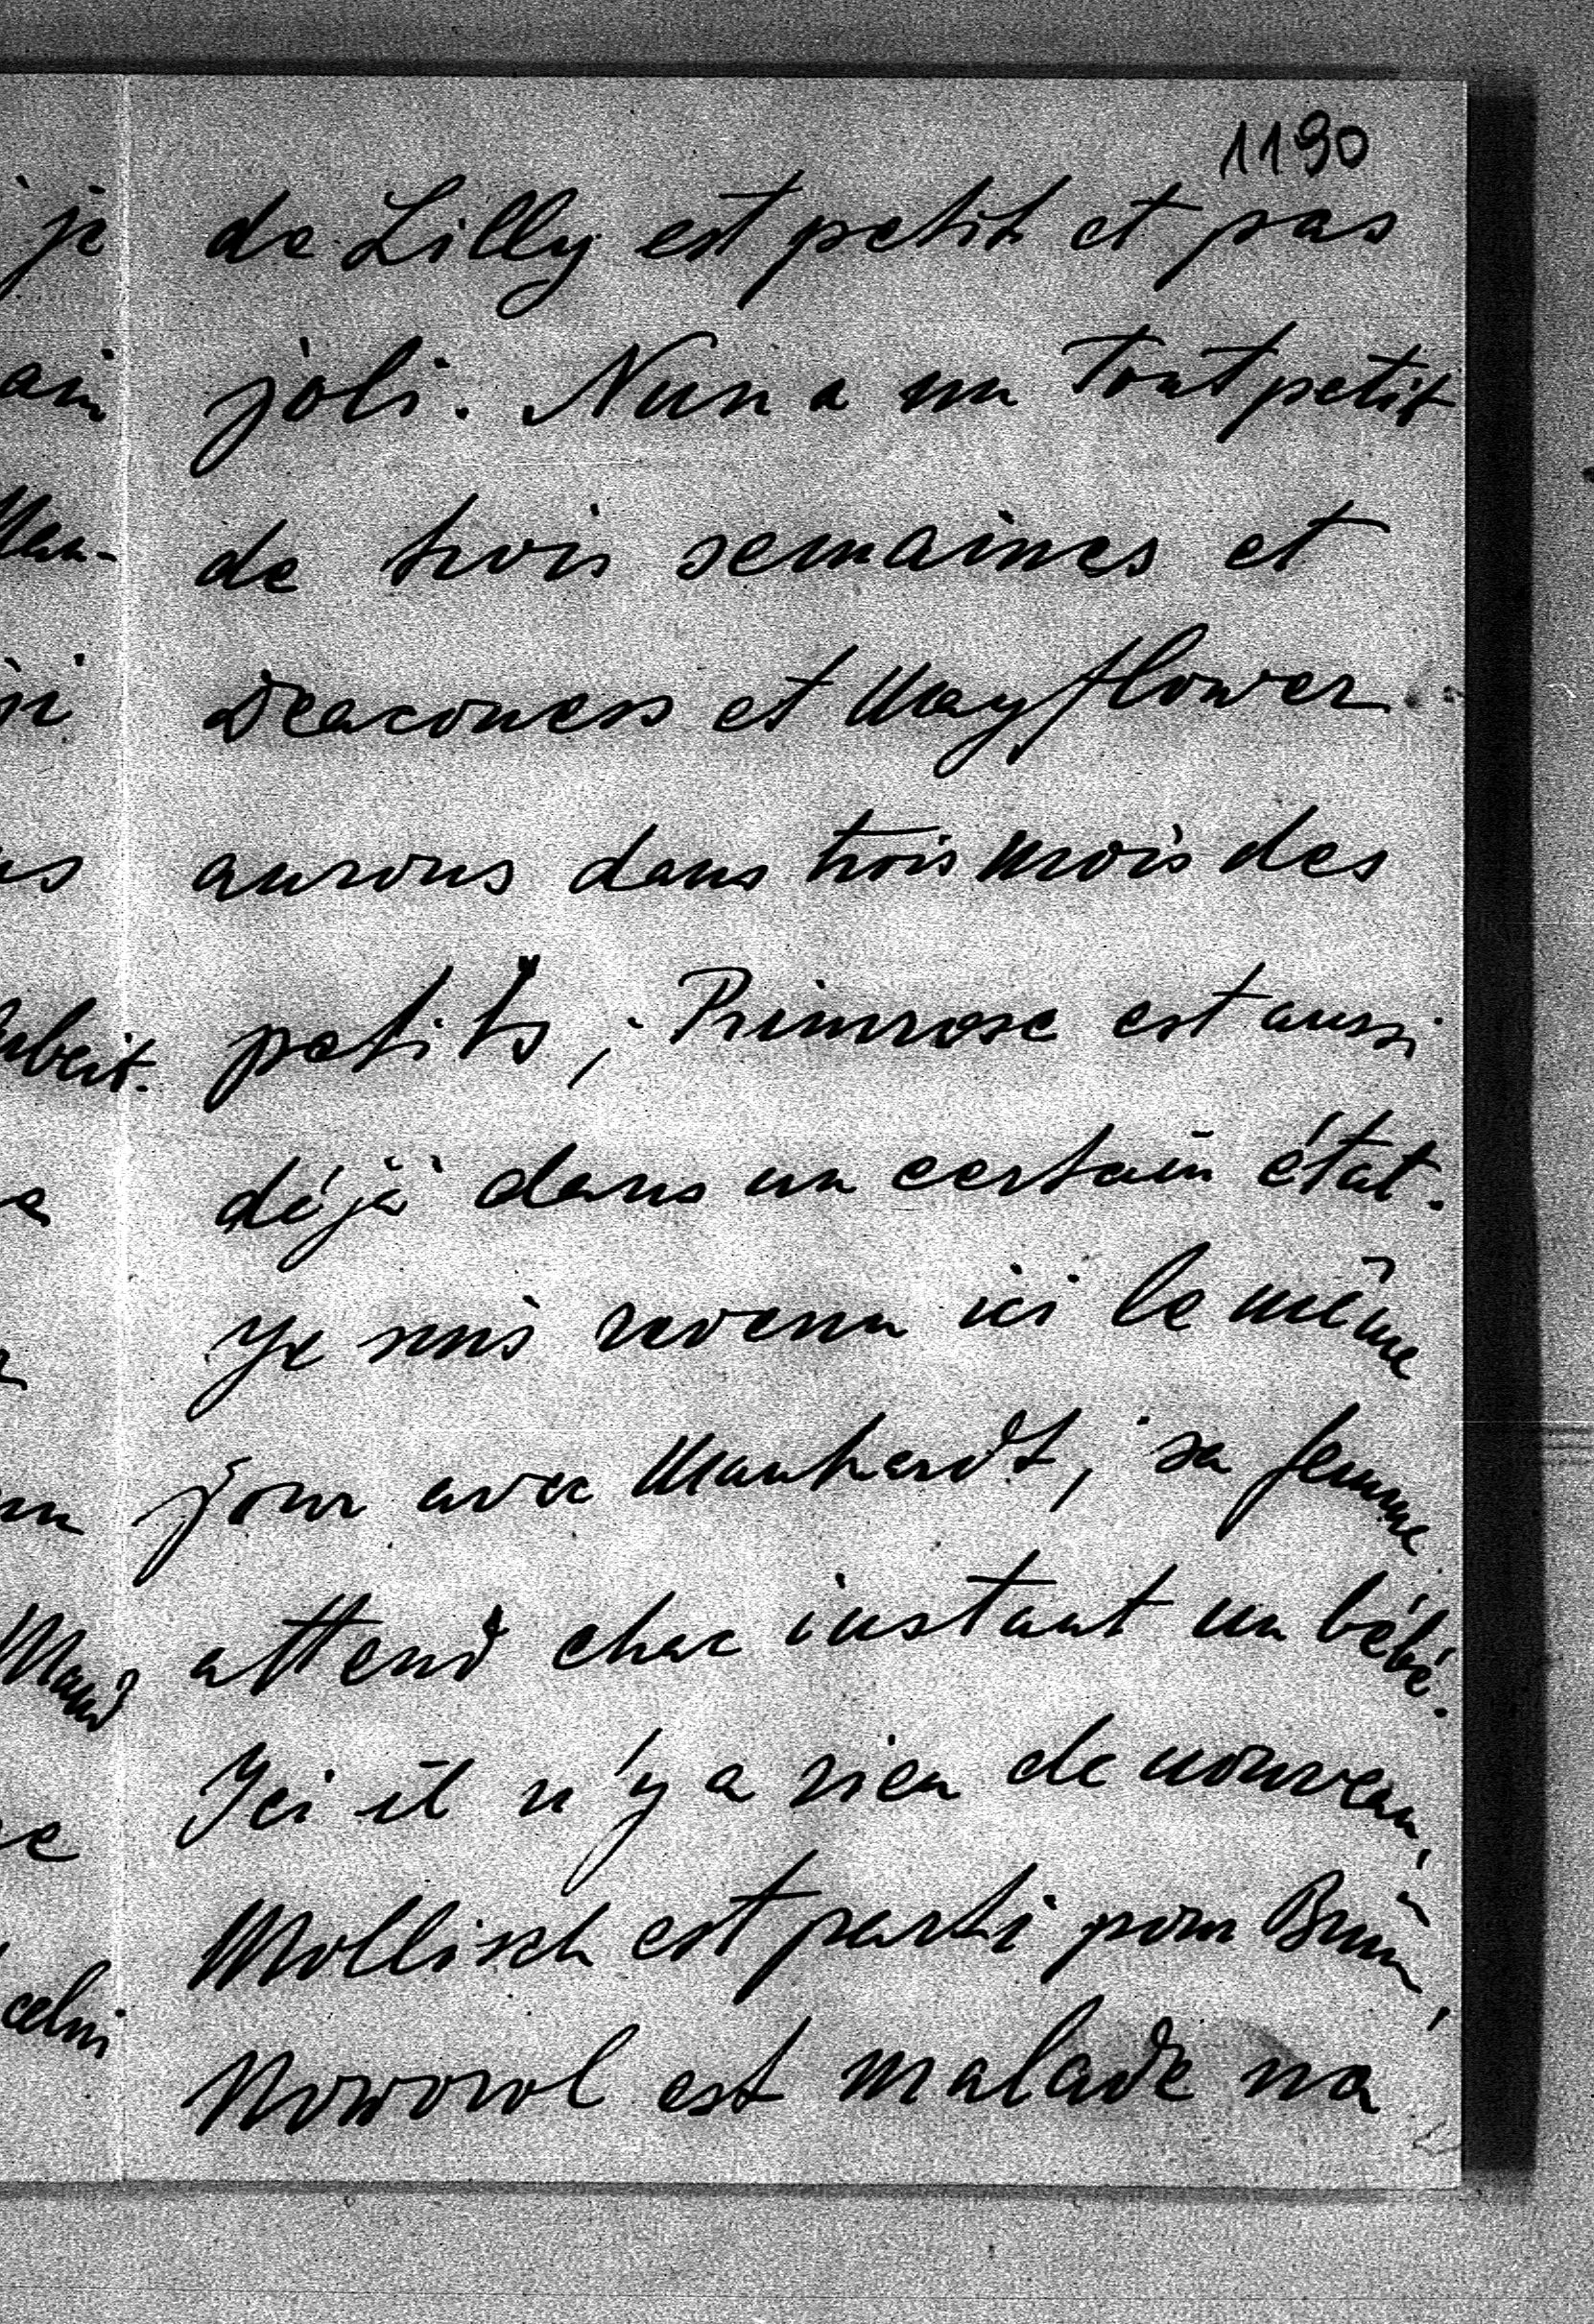 1190
je de Lilly est petit et pas
ain joli. Nun a un tout petit
de trois semaines et
Deaconess et Mayflower
aurons dans trois mois des
petits, Primrose est aussi
déjà dans un certain état.
Je suis revenu ici le même
jour avec Manhardt, sa femme
attend chac instant un bébé.
Ici il n'y a rien de nouveau,
Mollisch est parti pour Brünn,
Noworol est malade na
celui